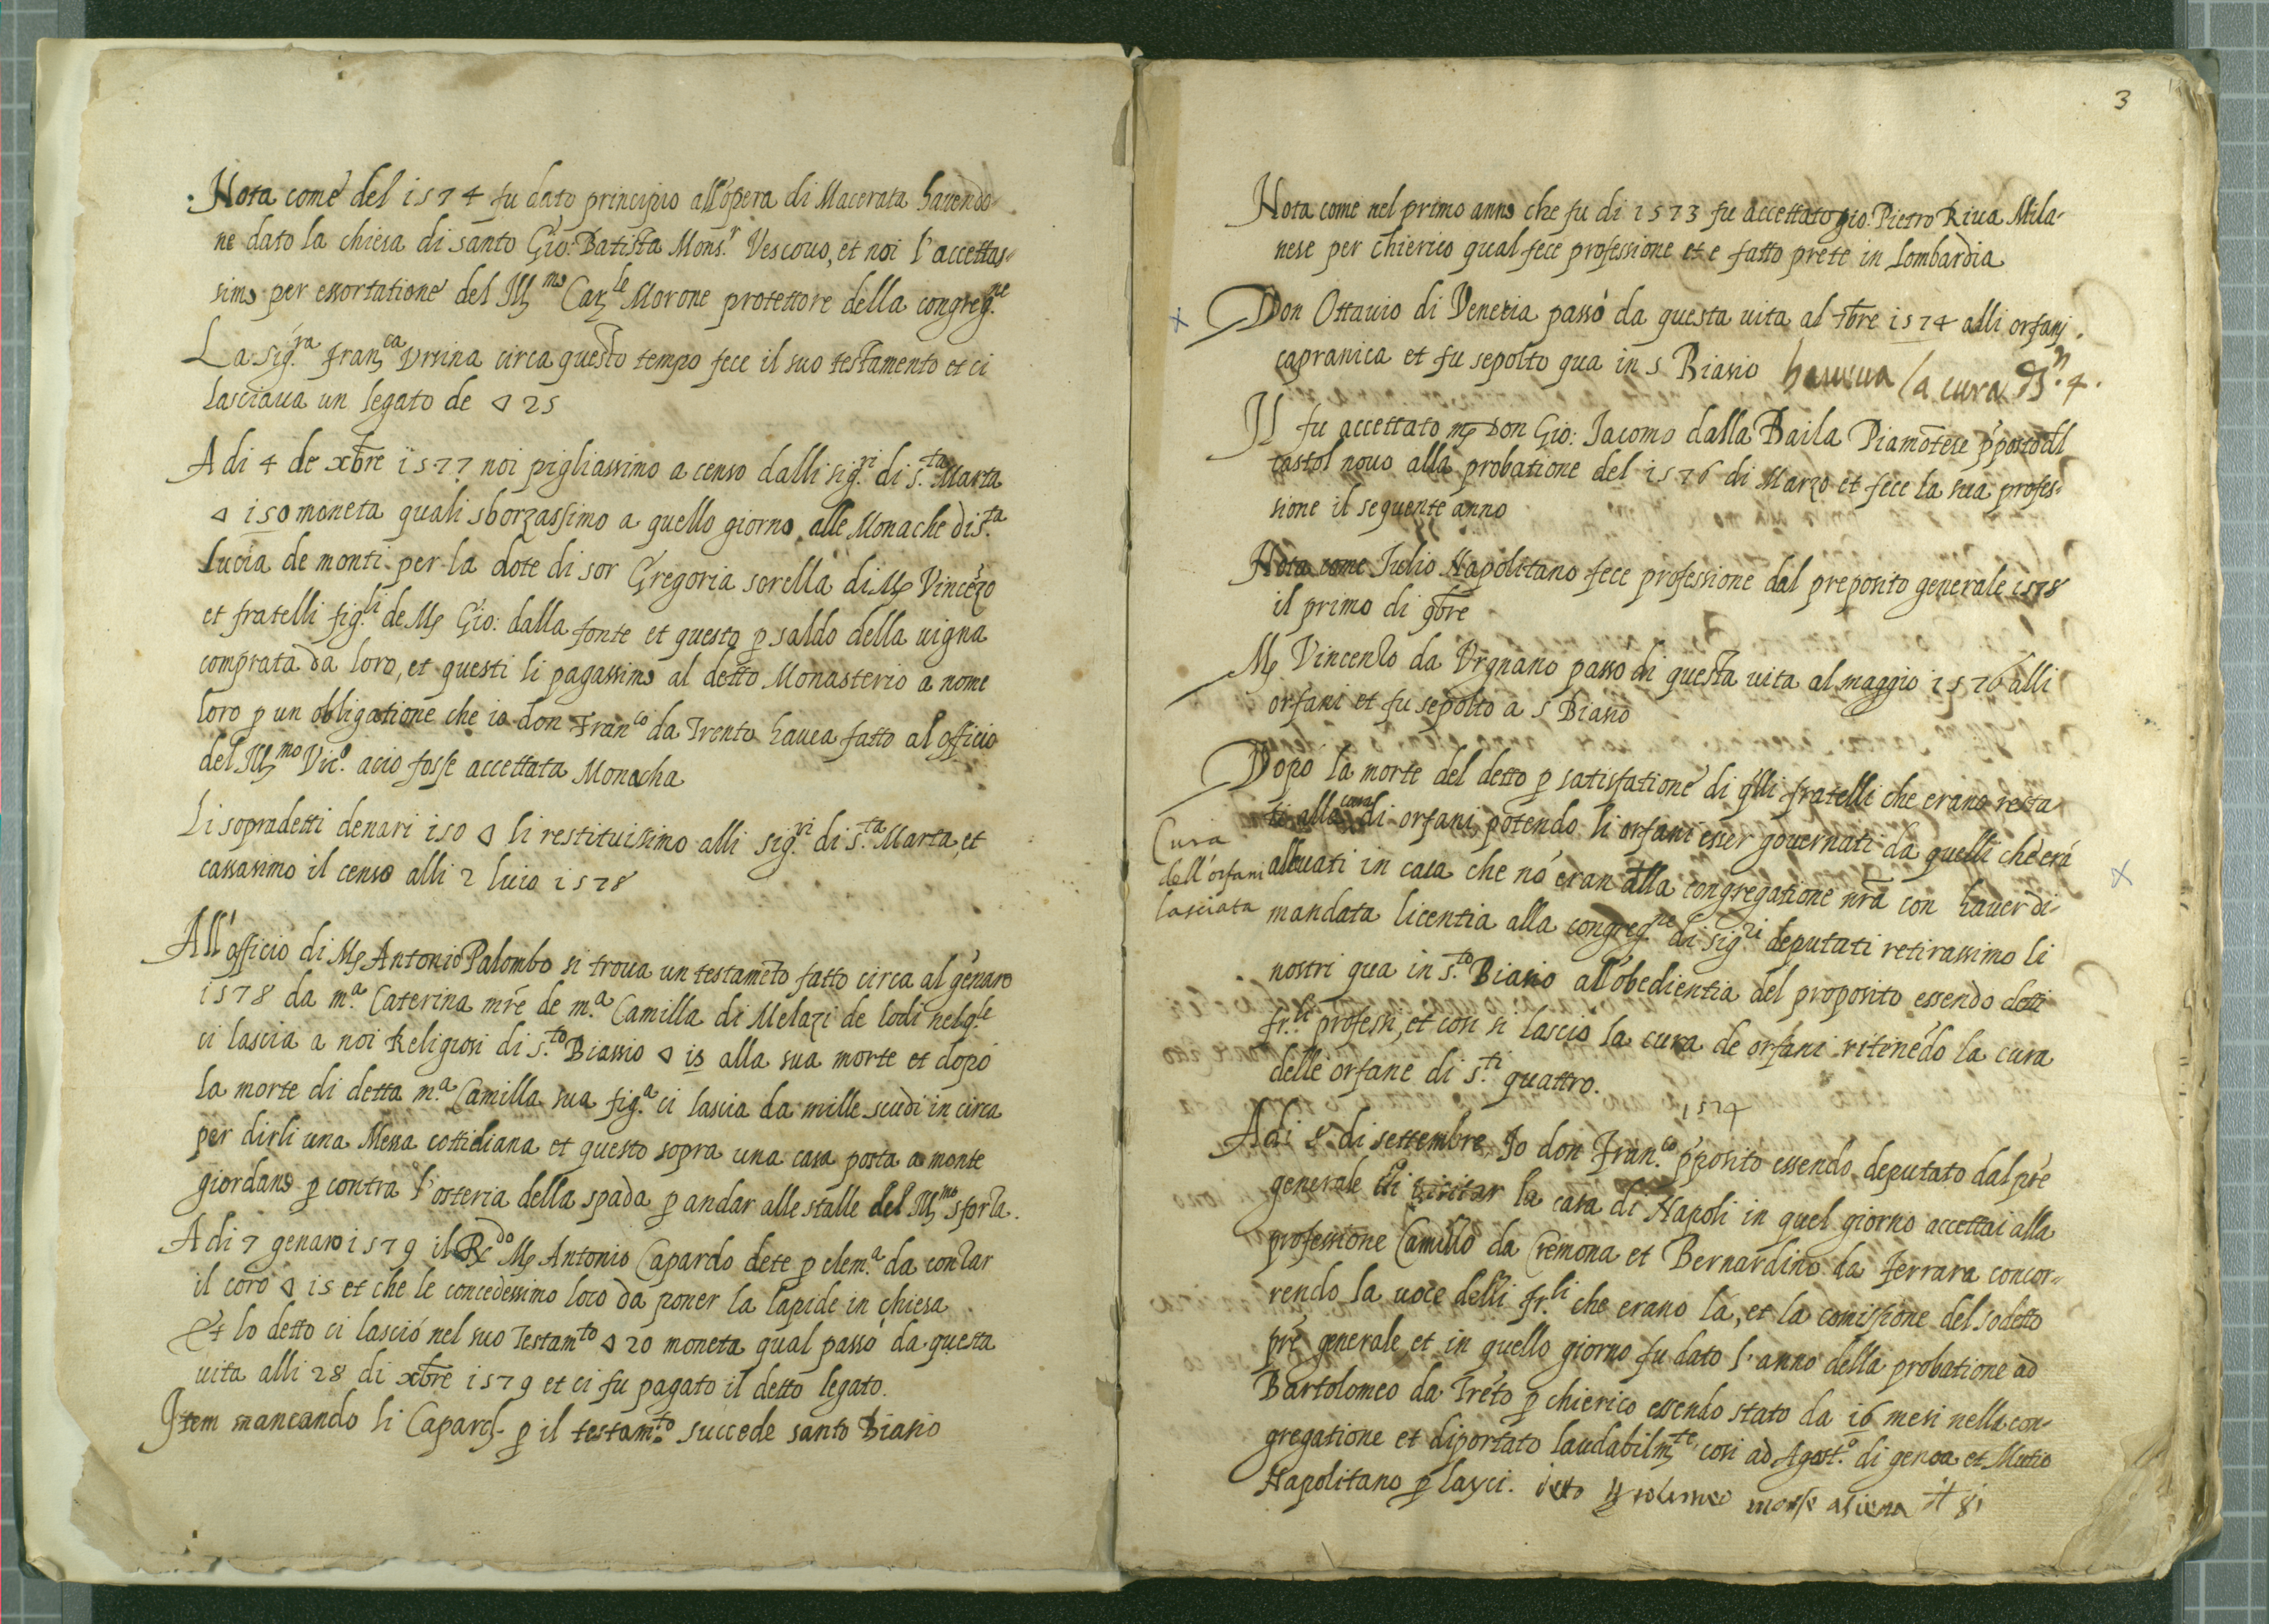 Nota come del 1574 fu dato principio all'opera di Macerata havendo-
ne dato la chiesa di santo Gio: Batista Mons.r Vescovo, et noi l'accettas-
simo per essortatione del Ill.mo Car.le Morone protettore della congreg.ne
La sig.ra Fran.ca Ursina circa questo tempo fece il suo testamento et ci
lasciava un legato de ▽ 25
A di 4 de xbre 1577 noi pigliassimo a censo dalli sig.ri di s.ta Marta
▽ 150 moneta quali sborzassimo a quello giorno alle Monache di s.ta
Lucia de monti per la dote di sor Gregoria sorella di Ms Vincēzo
et fratelli fig.li de Ms Gio: dalla fonte et questo p saldo della vigna
comprata da loro, et questi li pagassimo al detto Monasterio a nome
loro p un obligatione che io don Fran.co da Trento havea fatto al officio
del Ill.mo Vic.o acio fosse accettata Monacha
Li sopradetti denari 150 ▽ li restituissimo alli sig.ri di s.ta Marta, et
cassassimo il censo alli 2 luio 1578
All'officio di Ms Antonio Palombo si trova un testamēto fatto circa al genaro
1578 da m.a Caterina mře de m.a Camilla di Melazi de lodi nel q.le
ci lascia a noi Religiosi di s.to Biassio ▽ 15 alla sua morte et dopò
la morte di detta m.a Camilla sua fig.a ci lascia da mille scudi in circa
per dirli una Messa cottidiana et questo sopra una casa posta a monte
giordano p contra l'osteria della spada p andar alle stalle del Ill.mo sforza.
A di 7 genaro 1579 il R.do Ms Antonio Capardo dete p elem.a da conzar
il coro ▽ 15 et che le concedessimo loco da poner la lapide in chiesa
Et lo detto ci lasciò nel suo Testam.to ▽ 20 moneta qual passò da questa
vita alli 28 di xbre 1579 et ci fu pagato il detto legato.
Item mancando li Capard. p il testam.to succede santo Biasio
3
Nota come nel primo anno che fu di 1573 fu accettato gio. Pietro Riva Mila-
nese per chierico qual fece professione et e fatto prete in Lombardia
Don Ottavio di Venetia passò da questa vita al 7bre 1574 alli orfani
capranica et fu sepolto qua in s Biasio haveva la cura
Il fu accettato ms Don Gio: Iacomo dalla Baila Piamōtese p̄posto dil
castol novo alla probatione del 1576 di Marzo et fece la sua profes-
sione il sequente anno
Nota come Iulio Napolitano fece professione dal preposito generale 1578
il primo di 9bre
Ms Vincenzo da Urgnano passo di questa vita al maggio 1576 alli
orfani et fu sepolto a s Biasio
Dopò la morte del detto p satisfatione di q̄lli fratelli che erano resta
ti alla cura di orfani, potendo li orfani esser governati da quelli che erā
Cura
dell'orfani
lasciata
allevati in casa che nō eran alla congregatione nr̄a con haver di-
mandata licentia alla congreg.ne di sig.ri deputati retirassimo li
nostri qua in s.to Biasio all'obedientia del proposito essendo detti
fr.lli professi, et così si lascio la cura de orfani ritenēdo la cura
delle orfane di s.ti quattro.
1574
Adi 8 di settembre, Io don Fran.co p̄posito essendo deputato dal pr̄e
generale di visitar la casa di Napoli in quel giorno accettai alla
professione Camillo da Cremona et Bernardino da Ferrara concor-
rendo la voce delli fr.lli che erano là, et la comissione del sodetto
pr̄e generale et in quello giorno fu dato l'anno della probatione ad
Bartolomeo da Trēto p chierico essendo stato da 16 mesi nella con-
gregatione et diportato laudabilm.te, cosi ad Agost.o di genoa et Mutio
Napolitano p layci.